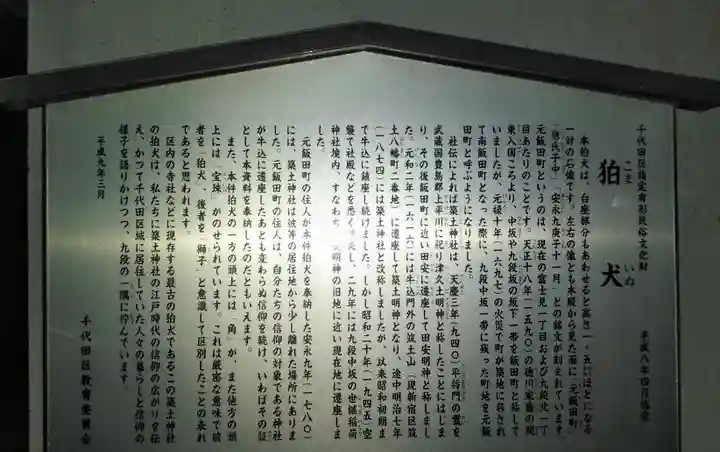 千代田区指定有形民俗文化財
平成八年四月指定
狛犬
こま いぬ
本狛犬は、台座部分もあわせると高さ二・五ほどになる
一対の石像です。左右の像とも本殿から見た面に「元飯田町」
「惣氏子中」「安永九庚子十一月」との銘文が刻まれています。
元飯田町というのは、現在の富士見一丁目および九段北一丁
目あたりのことです。天正十八年(一五九〇)の徳川家康の関
東入国ころより、中坂や九段坂の坂下一帯を飯田町と称して
いましたが、元禄十年(一六九七)の火災で町が築地に移され
て南飯田町となった際に、九段中坂一帯に残った町地を元飯
田町と呼ぶようになりました。
社伝によれば築土神社は、天慶三年(九四〇)平将門の霊を
武蔵国豊島郡上平川に祀り津久土明神と称したことにはじま
り、その後飯田町に近い田安に遷座して田安明神と称しまし
た。元和二年(一六一六)には牛込門外の筑土山(現新宿区筑
土八幡町二番地)に遷座して築土明神となり、途中明治七年
(一八七四)には築土神社と改称しましたが、以来昭和初期ま
で牛込に鎮座し続けました。しかし昭和二十年(一九四五)空
襲で社殿などを悉く焼失し、二九年には九段中坂の世継稲荷
神社境内、すなわち、明神の旧地に近い現在地に遷座しま
した。
元飯田町の住人が本件狛犬を奉納した安永九年(一七八〇)
には、築土神社は彼等の居住地から少し離れた場所にありま
した。元飯田町の住人は、自分たちの信仰の対象である神社
が牛込に遷座したあとも変わらぬ信仰を続け、いわばその証
として本資料を奉納したのだともいえます。
また、本件狛犬の一方の頭上には「角」が、また他方の頭
上には「宝珠」がのせられています。これは厳密な意味で前
者を「狛犬」、後者を「獅子」と意識して区別したことの表れ
であると思われます。
区内の寺社などに現存する最古の狛犬であるこの築土神社
の狛犬は、私たちに築土神社の江戸時代の信仰の広がりを伝
え、かつて千代田区域に居住していた人々の暮らしと信仰の
様子を語りかけつつ、九段の一隅に佇んでいます。
平成九年三月
千代田区教育委員会